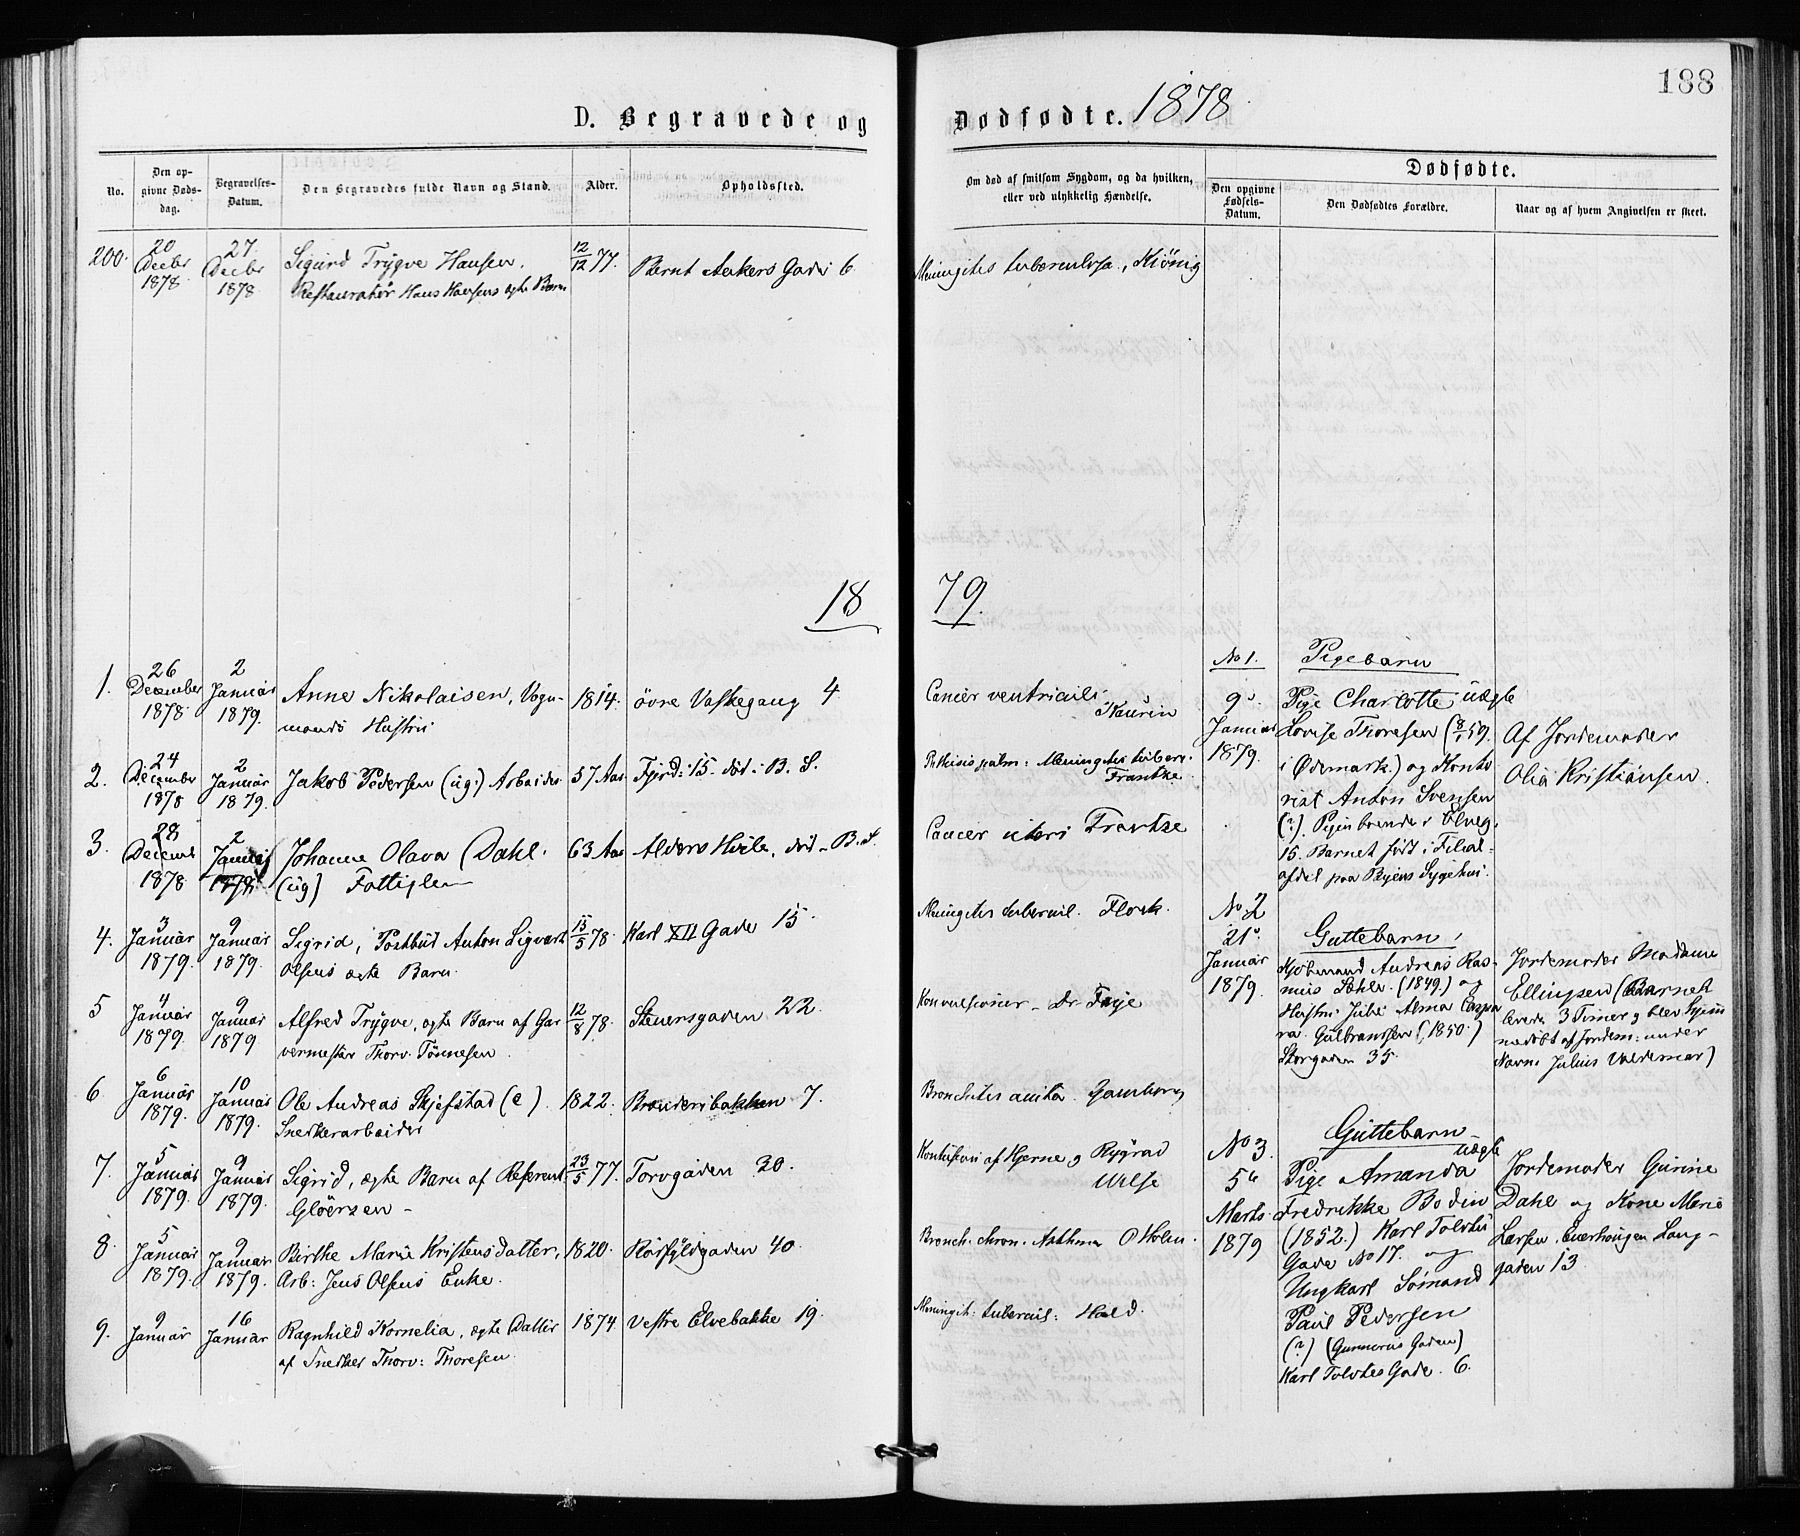 188
D. Begravede og Dødfødte. 1878.
No.
Den opgivne Dødsdag.
Begravelses-Datum.
Den Begravedes fulde Navn og Stand.
Alder.
Opholdssted.
Om død af smitsom Sygdom, og da hvilken, eller ved ulykkelig Hændelse.
Dødfødte.
Den opgivne Fødsels-Datum.
Den Dødfødtes Forældre.
Naar og af hvem Angivelsen er skeet.
200. 20 Decbr 1878. 27. Decbr 1878 Sigurd Trygve Hansen. 12/12 77. Bernt Ankers Gade 6 Meningites tuberculosa, Kiönig
Restauratør Hans Hansens ægte Barn
1879.
1. 26 December 1878. 2 Januar 1879. Anne Nikolaisen, Vogn- 1814. övre Vaskegang 4 Cancer ventriculi.
mands Hustru Kaurin
2. 24 December 1878 2 Januar 1879. Jakob Pedersen (ug.) Arbeider 57 Aar Fjerd: 15. död i B. S. Phthisis pulm: Meningites tuberc.
Frantze
3. 28 Decemb 1878 2 Januar Johanne Olava Dahl. 63 Aar Alders Hvile, död - B. S. Cancer uteri Frantze
(ug) Fattiglem
4. 3 Januar 1879. 9 Januar 1879. Sigrid, Postbud Anton Sigvart 15/5 78. Karl XII Gade 15. Meningites tubercul. Flock.
Olsens ægte Barn.
5 4 Januar 1879. 9 Januar 1879 Alfred Trygve, ægte Barn af Gar 12/8 78. Steuersgaden 22. Konvulsioner - Dr. Faye
vermester Thorv. Tönnesen.
6 6 Januar 1879. 10 Januar 1879. Ole Andreas Skjefstad (e). 1822. Brænderibakken 7. Bronchites acuta. Gamborg
Snedkerarbeider
7. 5 Januar 1879. 9 Januar 1879. Sigrid, ægte Barn af Referent 23/5 77. Torvgaden 20. Kontusion af Hjerne og Rygrad
Glöersen - Ulse
8. 5 Januar 1879. 9 Januar 1879. Birthe Marie Kristensdatter, 1820. Rörfyldgaden 40. Bronch. chron. Asthma O Holm.
Arb: Jens Olsens Enke.
9. 9 Januar 16 Januar Ragnhild Kornelia, ægte Datter 1874 Vestre Elvebakke 19. Meningit: tubercul: Hald.
af Snedker Thorv: Thoresen.
No 1. Pigebarn
9de Januar 1879.
Pige Charlotte uægte
Lovise Thoresen (8/1 59.
i Ødemark.) og Konto
rist Anton Svensen
(?). Pigen boende Elveg.
15. Barnet född i Filial-
afdel paa Byens Sygehus.
Af Jordemoder
Olia Kristiansen.
No 2
21de Januar 1879.
Guttebarn,
Kjöbmand Andreas Ras-
mus (1849.) og
Hustru Julie Alma Caspa
ra Gulbrandsen (1850.)
Storgaden 35.
Jordemoder Madame
Ellingsen (Barnet
levede 3 Timer og blev hjem
medöbt af Jordem: under
Navn Julius Valdemar)
No 3. Guttebarn
uægte
5te Marts 1879
Pige Amanda
Fredrikke Bodin
(1852.) Karl Tolvtes
Gade No 17. og
Ungkarl Sömand
Paul Pedersen
(?) (Gunnerus Gaden)
Karl Tolvtes Gade. 6.
Jordemoder Gurine
Dahl og Kone Marie
Larsen, Enerhaugen Lang-
gaden 13